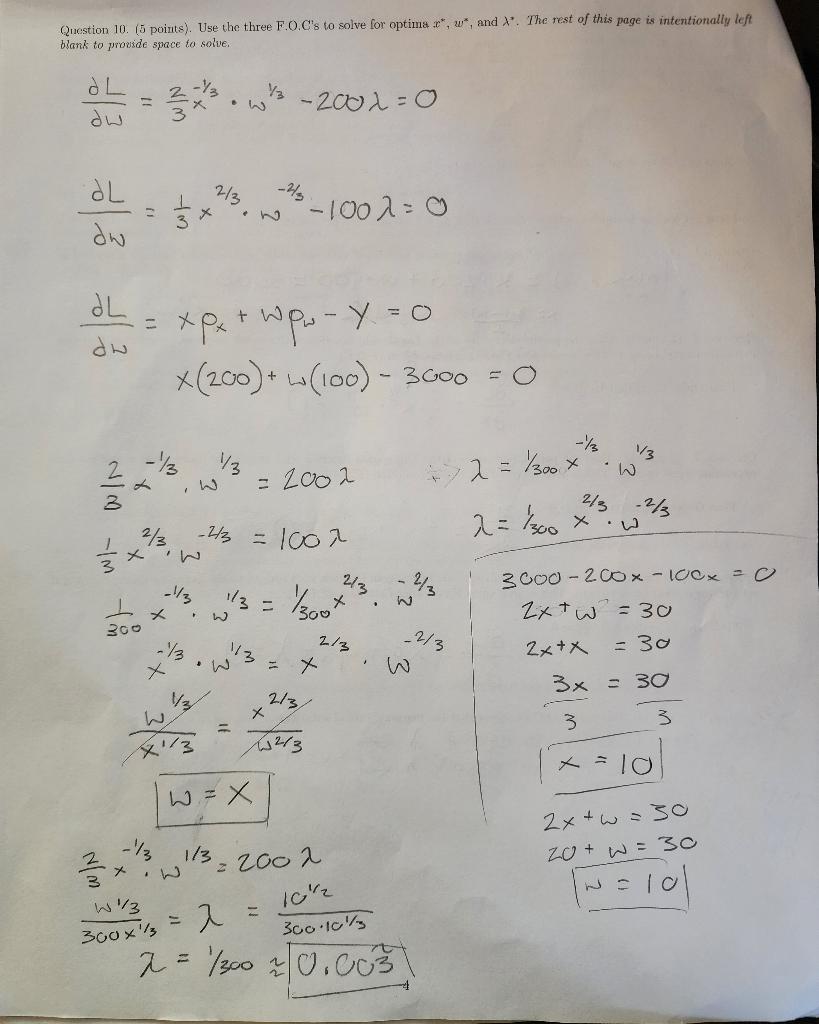 Question 10. (5 points). Use the three F.O.C's to solve for optima x*, w*, and λ*. The rest of this page is intentionally left
blank to provide space to solve.
∂L/∂w = 2/3 x^-1/3 · w^1/3 - 200λ = 0
∂L/∂w = 1/3 x^2/3 · w^-2/3 - 100λ = 0
∂L/∂w = xpₓ + wp_w - y = 0
x(200) + w(100) - 3000 = 0
2/3 x^-1/3 · w^1/3 = 200λ
1/3 x^2/3 · w^-2/3 = 100λ
1/300 x^-1/3 · w^1/3 = 1/300 x^2/3 · w^-2/3
x^-1/3 · w^1/3 = x^2/3 · w^-2/3
w^1/3 / x^1/3 = x^2/3 / w^2/3
w = x
2/3 x^-1/3 · w^1/3 = 200λ
w^1/3 / 300x^1/3 = λ = 10^1/2 / 300·10^1/3
λ = 1/300 ≈ 0.003
λ = 1/300 x^-1/3 · w^1/3
λ = 1/300 x^2/3 · w^-2/3
3000 - 200x - 100x = 0
2x + w = 30
2x + x = 30
3x = 30
3 3
x = 10
2x + w = 30
20 + w = 30
w = 10